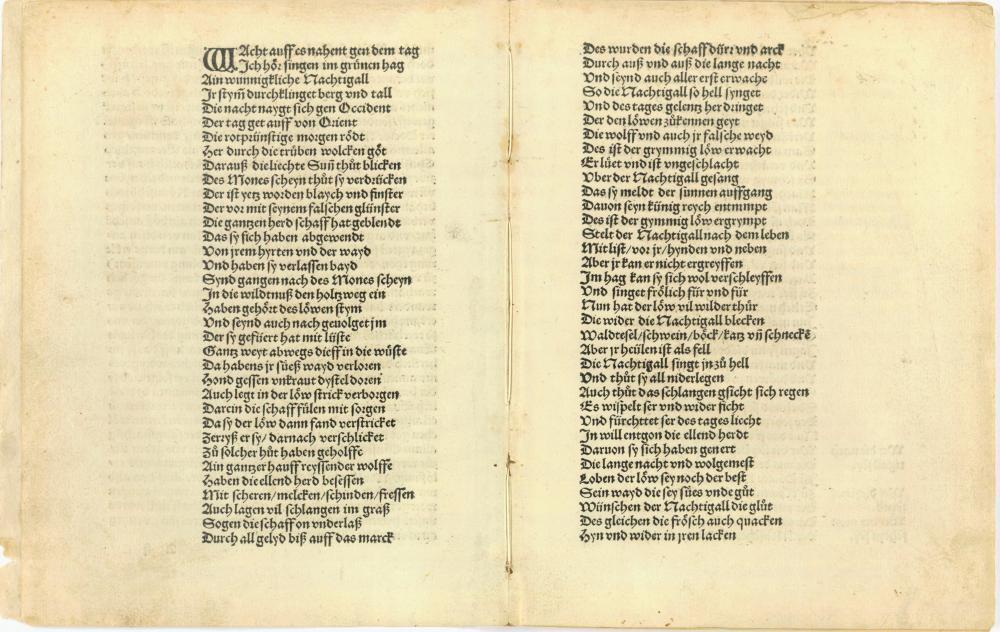 WAcht auff es nahent gen dem tag
Jch hör singen im grünen hag
Ain wunnigkliche Nachtigall
Jr stym̃ durchklinget berg vnd tall
Die nacht naygt sich gen Occident
Der tag get auff von Orient
Die rotprünstige morgen rödt
Her durch die trüben wolcken göt
Darauß die liechte Sun̄ thůt blicken
Des Mones scheyn thůt sy verdrücken
Der ist yetz worden blaych vnd finster
Der vor mit seynem falschen glünster
Die gantzen herd schaff hat geblendt
Das sy sich haben abgewendt
Von jrem hyrten vnd der wayd
Vnd haben sy verlassen bayd
Synd gangen nach des Mones scheyn
Jn die wildtnuß den holtzweg ein
Haben gehört des löwen stym
Vnd seynd auch nach geuolget jm
Der sy gefüert hat mit lüste
Gantz weyt abwegs dieff in die wüste
Da habens jr süeß wayd verloren
Hond gessen vnkraut dystel doren
Auch legt in der löw strick verborgen
Darein die schaff fülen mit sorgen
Da sy der löw dann fand verstricket
Zerryß er sy/ darnach verschlicket
Zů solcher hůt haben geholffe
Ain gantzer hauff reyssender wolffe
Haben die ellend herd besessen
Mit scheren/melcken/schinden/fressen
Auch lagen vil schlangen im graß
Sogen die schaff on vnderlaß
Durch all gelyd biß auff das marck
Des wurden die schaff dürr vnd arck
Durch auß vnd auß die lange nacht
Vnd seynd auch aller erst erwache
So die Nachtigall so hell synget
Vnd des tages gelentz her dringet
Der den löwen zůkennen geyt
Die wolff vnd auch jr falsche weyd
Des ist der grymmig löw erwacht
Er lüet vnd ist vngeschlacht
Vber der Nachtigall gesang
Das sy meldt der sunnen auffgang
Dauon seyn künig reych entnimpt
Des ist der gymmig löw ergrympt
Stelt der Nachtigall nach dem leben
Mit list/ vor jr/ hynden vnd neben
Aber jr kan er nicht ergreyffen
Jm hag kan sy sich wol verschleyffen
Vnd singet frölich für vnd für
Nun hat der löw vil wilder thür
Die wider die Nachtigall blecken
Waldtesel/schwein/böck/katz vn̄ schneckē
Aber jr heülen ist als fell
Die Nachtigall singt jn zů hell
Vnd thůt sy all niderlegen
Auch thůt das schlangen gsicht sich regen
Es wispelt ser vnd wider ficht
Vnd fürchttet ser des tages liecht
Jn will entgon die ellend herdt
Daruon sy sich haben genert
Die lange nacht vnd wolgemest
Loben der löw sey noch der best
Sein wayd die sey sües vnde gůt
Wünschen der Nachtigall die glůt
Des gleichen die frösch auch quacken
Hyn vnd wider in jren lacken